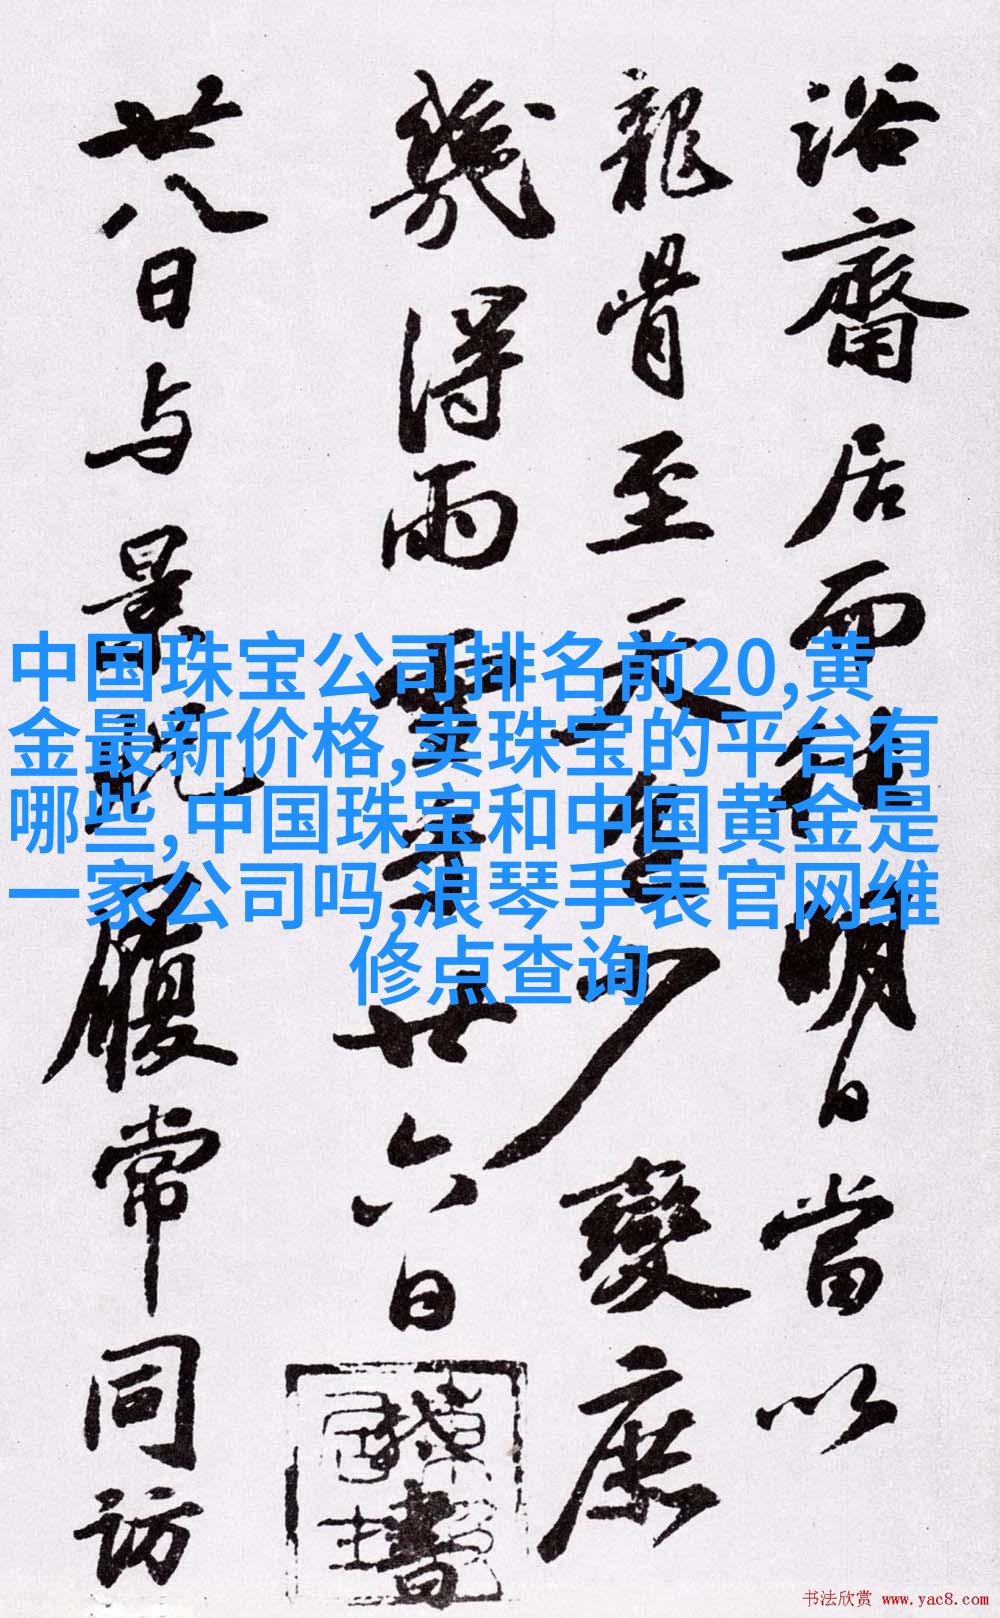 浴齋居而後明日當以
龍骨至天堂少變庶
幾得雨 廿六日
書
廿八日與景 腹常同訪
中国珠宝公司排名前20,黄
金最新价格,卖珠宝的平台有
哪些,中国珠宝和中国黄金是
一家公司吗,浪琴手表官网维
修点查询
书法欣赏 www.yac8.com